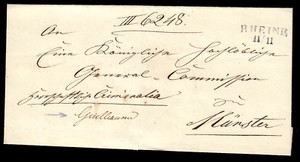 III 6248.
RHEINE
11/11
An
Eine Königliche Hochlöbliche
General-Commission
Herrschaftl. Criminalia
zu
Guillaume
Münster